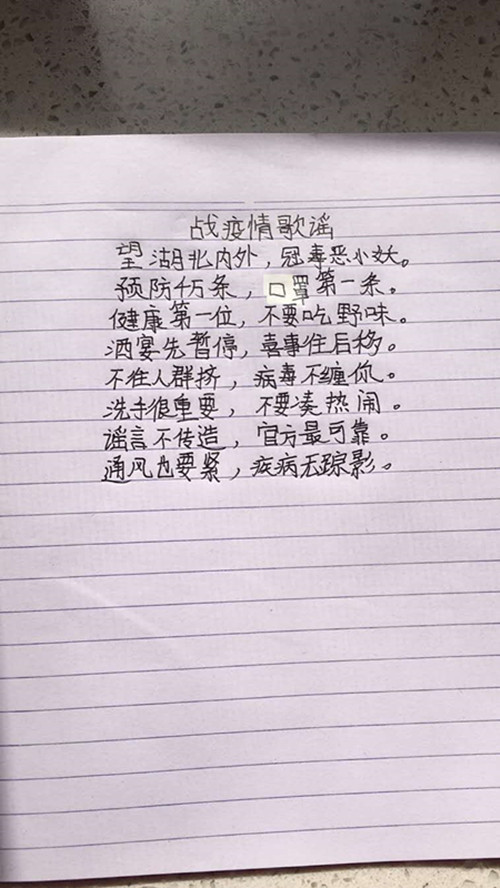 战疫情歌谣
望湖北内外，冠毒恶小妖。
预防千万条，口罩第一条。
健康第一位，不要吃野味。
酒宴先暂停，喜事住后移。
不往人群挤，病毒不缠你。
洗手很重要，不要凑热闹。
谣言不传造，官方最可靠。
通风也要紧，疾病无踪影。